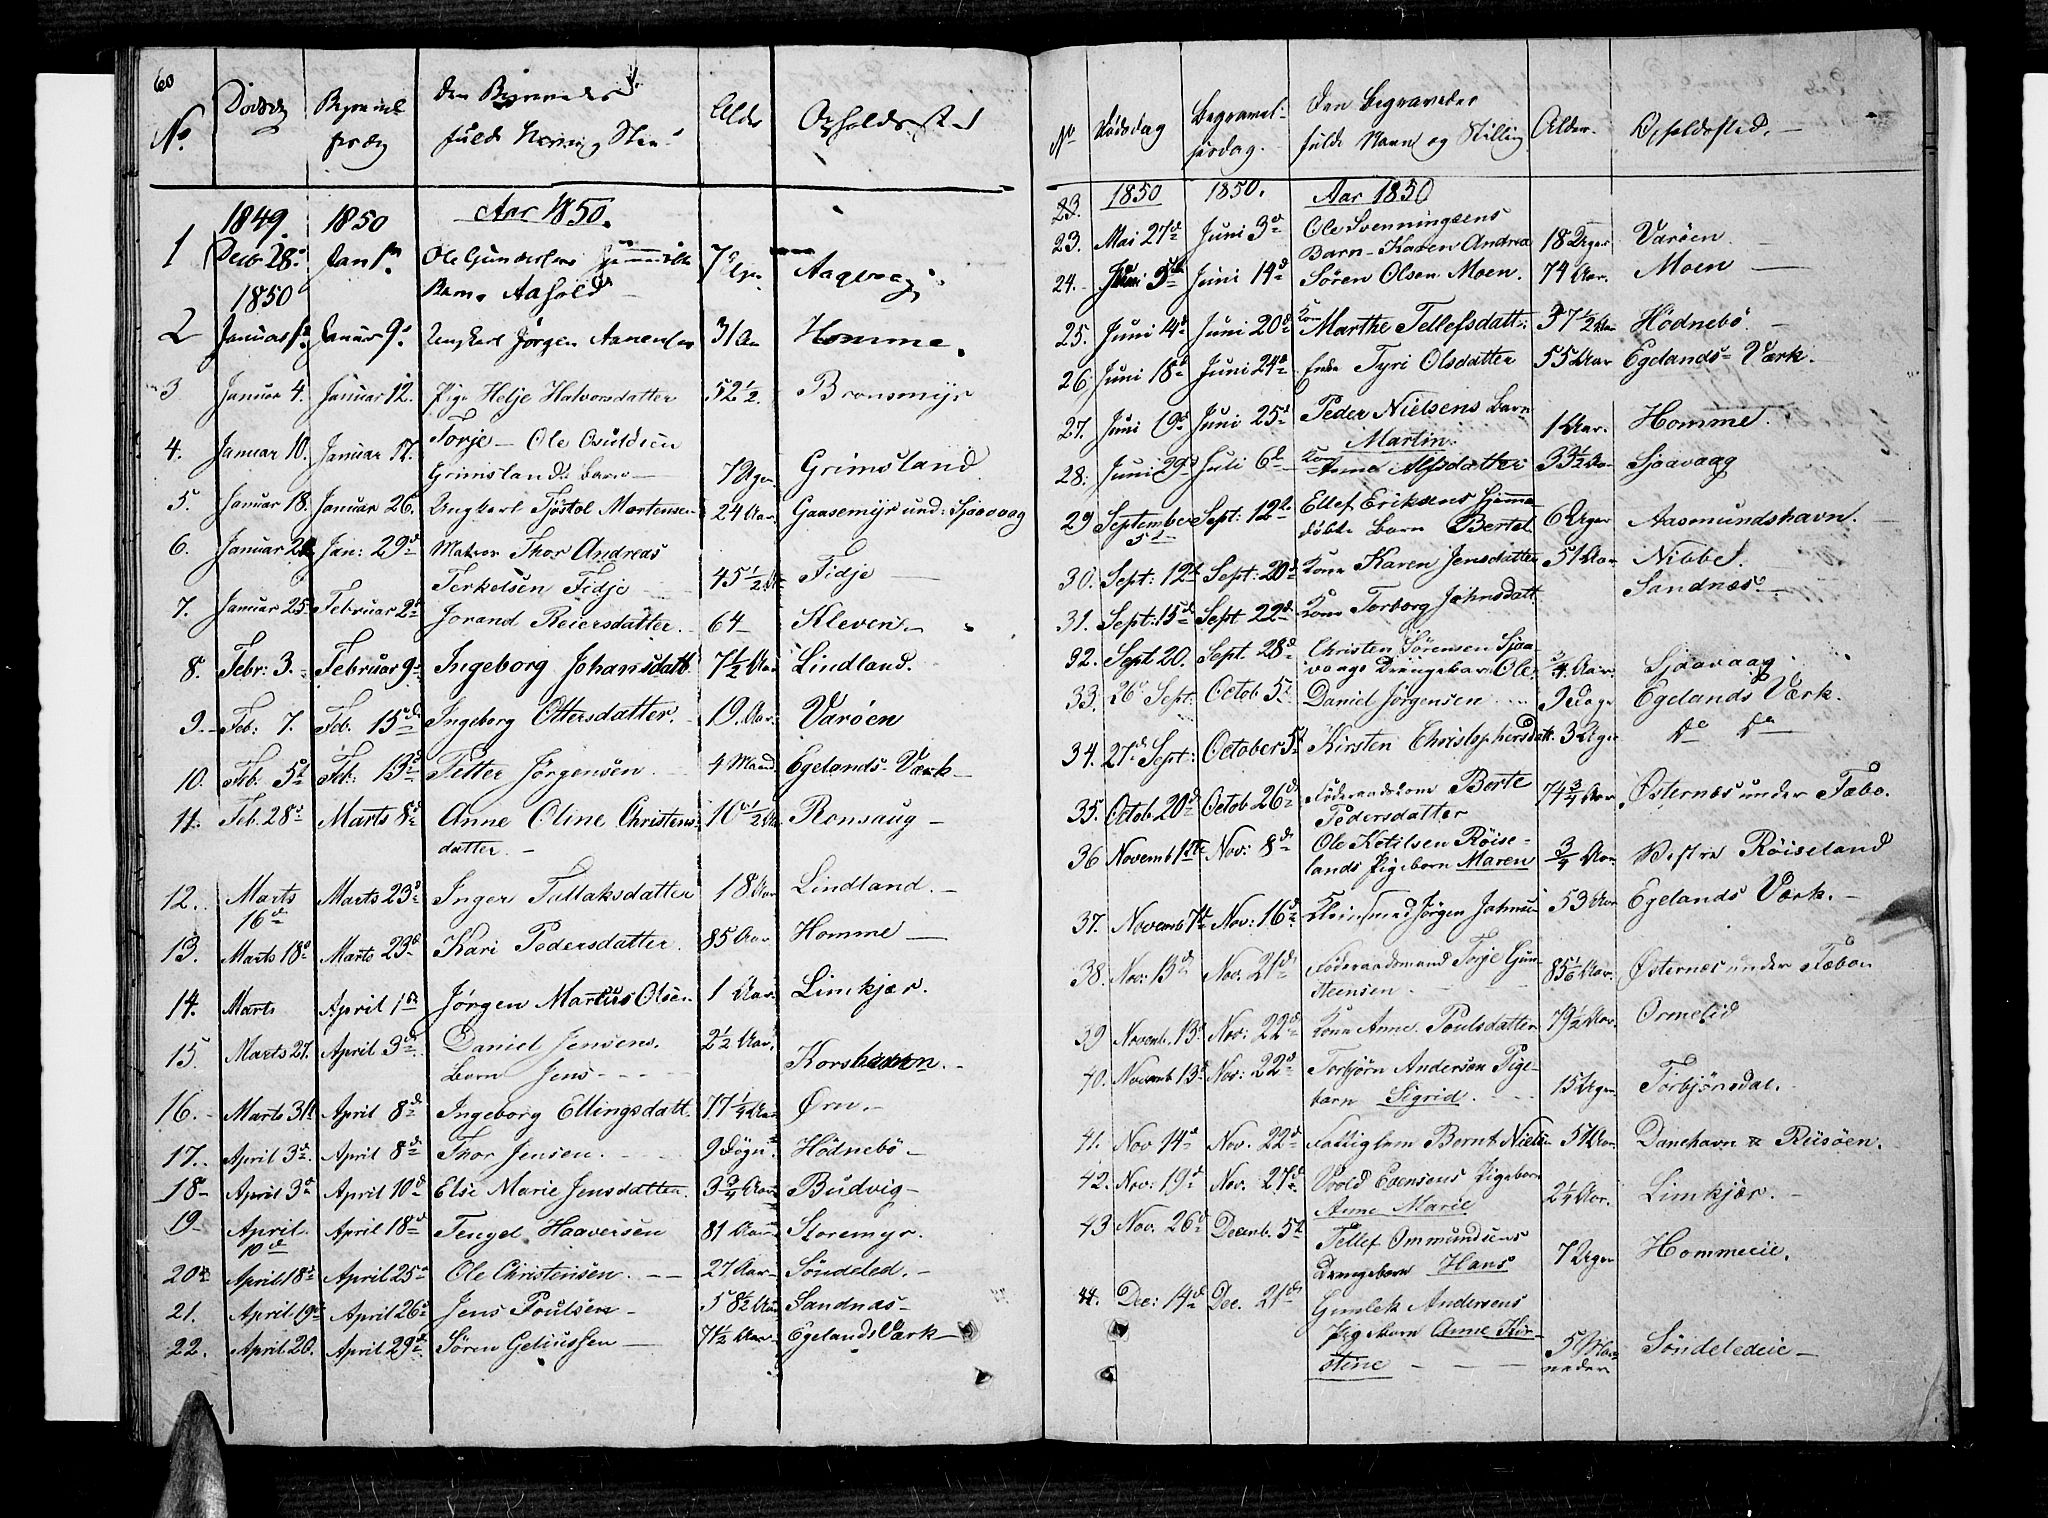 60
No
Dødsdag
Begravel-
sesdag
fulde Navn og
Alder
Opholdssted
1849. 1850 Aar 1850.
1 Decb 28. Jan 1 Ole Gundersens Hjemmedøbte 7 Uger Aaqvaag
Barn Aasold
1850
2 Januar 1 Januar 9. Ungkarl Jörgen Aanensen 31 Aar Homme.
3 Januar 4. Januar 12. Pige Helje Halvorsdatter 52½. Bronsmyr
4. Januar 10. Januar 17. Torje — Ole Osuldsen
Grimslands Barn — 7 Uger Grimsland
5. Januar 18. Januar 26. Ungkarl Tjöstol Mortensen 24 Aar. Gaasemyr und: Sjaavaag
6. Januar 21 Jan: 29d Matros Thor Andreas
Terkelsen Fidje 45½ Aar Fidje —
7. Januar 25 Februar 2d Jorand Reiersdatter. 64 — Kleven. —
8. Febr: 3. Februar 9 Ingeborg Johansdatt 7½ Aar Lindland.
9. Feb: 7. Feb. 15d Ingeborg Ottersdatter. 19. Aar. Varöen
10. Feb. 5t Feb: 13d Petter Jörgensen. 4 Maand. Egelands-Værk —
11. Feb. 28d Marts 8d Anne Oline Christens- 10½ Aar Ronsaug —
datter. —
12. Marts Marts 23d Inger Tallaksdatter 18 Aar Lindland. —
16d
13. Marts 18d Marts 23d Kari Pedersdatter. 85 Aar Homme —
14. Marts April 1 Jörgen Martius Olsen 1 Aar. Limkjær.
15. Marts 27. April 3d Daniel Jensens. 2½ Aar.
Barn Jens — Korshavn. —
16. Marts 31 April 8d Ingeborg Ellingsdatt. 77¼ Aar Ørn. —
17. April 3d. April 8d Thor Jensen. 9 Dögn. Hödnebö —
18 April 3d April 10d Else Marie Jensdatter. 3¾ Aar Budvig —
19. April April 18d Tengel Haaversen 81 Aar Storemyr.
10d
20 April 18d April 25d Ole Christensen. — — 27 Aar — Söndeled. —
21. April 19d April 26d Jens Poulsen — 58½ Aar Sandnæs —
22. April 20. April 29d. Sören Geliussen — 7½ Aar Egelands Værk —
No Dødsdag Begravel- Den Begravedes Alder. Opholdssted. —
sesdag. fulde Navn og Stilling
23. 1850 1850. Aar 1850
Ole Svenningsens
23. Mai 27d Juni 3d Barn — Karen Andrea 18 Uger Varöen.
24. Juni 5t Juni 14d Sören Olsen Moen. 74 Aar. Moen —
25. Juni 4d Juni 20d Kone Marthe Tellefsdatt: 37½ Aar Hödnebö. —
26 Juni 18d Juni 24d Enke Tyri Olsdatter 55 Aar Egelands-Værk.
27. Juni 19d Juni 25d Peder Nielsens Barn
Martin. 1 Aar. Homme.
28. Juni 29d Juli 6t Kone Anne Alfsdatter 33½ Aar Sjaavaag
29 September Sept: 12 Ellef Eriksens Hjemme-
5t döbte Barn Bertel 6 Uger Aasmundshavn. —
30. Sept: 12t Sept: 20d Kone Karen Jensdatter 51 Aar Nibbe.
31. Sept: 15d Sept 22d Kone Torborg Jahnsdatt. Sandnæs —
32. Sept 20. Sept. 28d Christen Sörensen Sjaa-
vaags Drengebarn Ole. ¾ Aar. Sjaavaag.
33. 26d Sept. Octob 5t Daniel Jörgensen 9 Dage Egelands Værk.
34. 27d Sept: October 5t Kirsten Christophersdatt. 3 Uger do do
35. Octob 20d Octob. 26d Föderaadskone Berte
Pedersdatter 74¾ Aar Østernæs under Fæbo.
36 Novemb 1ste Nov: 8d Ole Ketilsen Röise-
lands Pigebarn Maren ¾ Aar Vestre Röiseland
37. Novemb 7t Nov: 16d Jörgen Jahnsen 53 Aar Egelands Værk. —
38. Nov: 13d Nov. 21d Föderaadsmand Torje Gun-
steensen. 85 Aar. Østernæs under Fæbo
39 Novemb. 13d Nov: 22d Kone Anne Poulsdatter 79½ Aar. Ormelid
40. Novemb 13d Nov: 22d Torbjörn Andersen Pige-
barn Sigrid. 15 Uger Torbjönsdal.
41. Nov 14d Nov. 22d Fattiglem Bernt Nielsen 57 Aar. Danehavn Riisöen.
42. Nov: 19d Nov. 27d Evensens Pigebarn
Anne Marie 2¼ Aar. Limkjær. —
43 Nov. 26d Decemb. 5t Tellef Ommundsens
Drengebarn Hans 7 Uger Hommeeie.
44. Dec: 14d Dec. 21d Gunlek Andersens
Pigebarn Anne Kir-
stine — — — 5 Maa- Söndeledeie —
neder